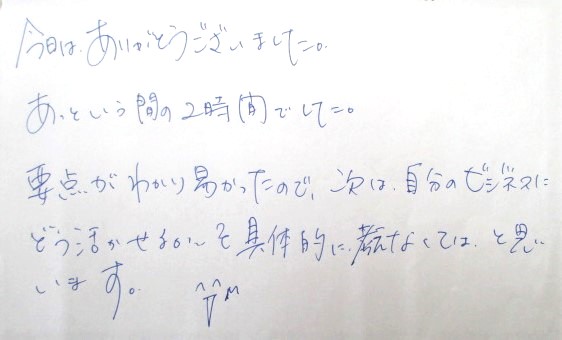 今日は、ありがとうございました。
あっという間の2時間でした。
要点がわかり易かったので、次は、自分のビジネスに
どう活かせるか〜を具体的に考えなくては、と思い
います。